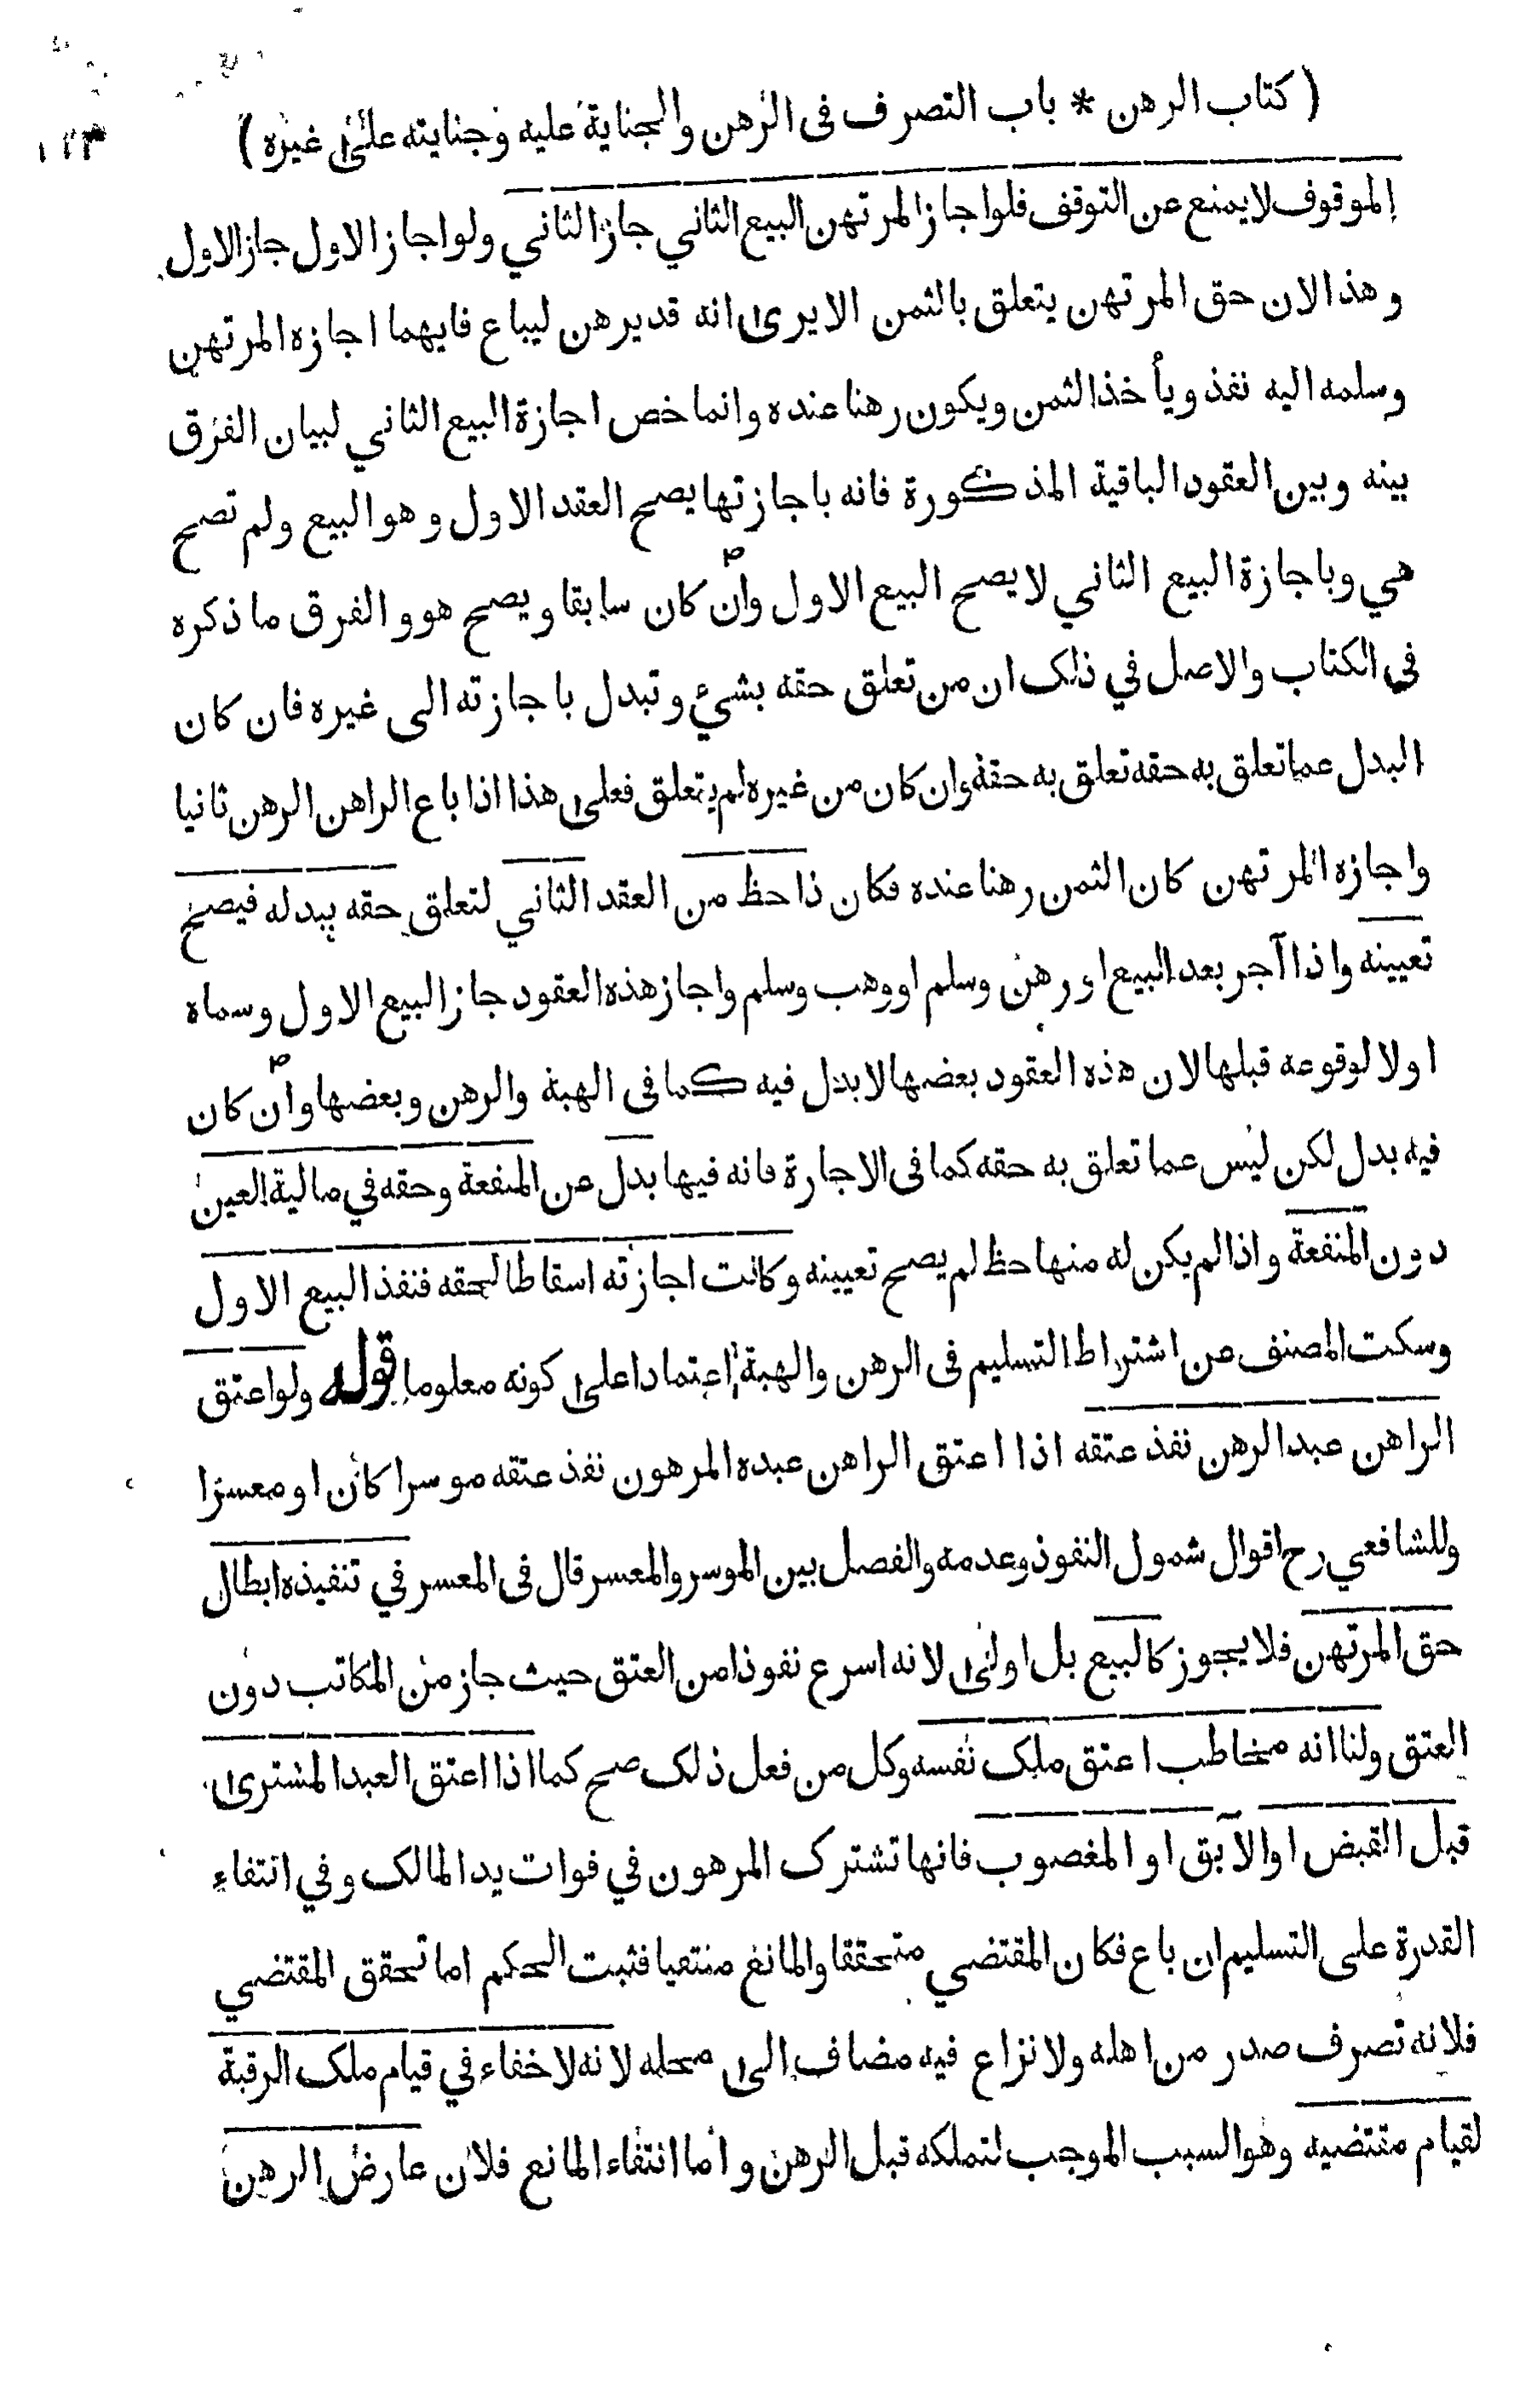 ( كتاب الرهن * باب التصرف فى الرهن والجناية عليه وجنايته على غيره )
الموقوف لا يمنع عن التوقف فلو اجاز المرتهن البيع الثاني جاز الثاني ولو اجاز الاول جاز الاول
وهذا لان حق المرتهن يتعلق بالثمن الا يرى انه قد يرهن ليباع فايهما اجازه المرتهن
وسلمه اليه نفذ ويأخذ الثمن ويكون رهنا عنده وانما خص اجازة البيع الثاني لبيان الفرق
بينه وبين العقود الباقية المذكورة فانه باجازتها يصح العقد الاول وهو البيع ولم تصح
هي وباجازة البيع الثاني لا يصح البيع الاول وان كان سابقا ويصح هو والفرق ما ذكره
فى الكتاب والاصل في ذلك ان من تعلق حقه بشيء وتبدل باجازته الى غيره فان كان
البدل عما تعلق به حقه تعلق به حقه وان كان من غيره لم يتعلق فعلى هذا اذا باع الراهن الرهن ثانيا
واجازه المرتهن كان الثمن رهنا عنده فكان ذا حظ من العقد الثاني لتعلق حقه ببدله فيصح
تعيينه واذا آجر بعد البيع او رهن وسلم او وهب وسلم واجاز هذه العقود جاز البيع الاول وسماه
اولا لوقوعه قبلها لان هذه العقود بعضها لا بدل فيه كما فى الهبة والرهن وبعضها وان كان
فيه بدل لكن ليس عما تعلق به حقه كما فى الاجارة فانه فيها بدل عن المنفعة وحقه في مالية العين
دون المنفعة واذا لم يكن له منها حظ لم يصح تعيينه وكانت اجازته اسقاطا لحقه فنفذ البيع الاول
وسكت المصنف عن اشتراط التسليم فى الرهن والهبة اعتمادا على كونه معلوما قوله ولو اعتق
الراهن عبد الرهن نفذ عتقه اذا اعتق الراهن عبده المرهون نفذ عتقه موسرا كان او معسرا
وللشافعي رح اقوال شمول النفوذ وعدمه والفصل بين الموسر والمعسر قال فى المعسر في تنفيذه ابطال
حق المرتهن فلا يجوز كالبيع بل اولى لانه اسرع نفوذا من العتق حيث جاز من المكاتب دون
العتق ولنا انه مخاطب اعتق ملك نفسه وكل من فعل ذلك صح كما اذا اعتق العبد المشترى
قبل القبض او الآبق او المغصوب فانها تشترك المرهون في فوات يد المالك وفي انتفاء
القدرة على التسليم ان باع فكان المقتضي متحققا والمانع منتفيا فثبت الحكم اما تحقق المقتضي
فلانه تصرف صدر من اهله ولا نزاع فيه مضاف الى محله لانه لا خفاء في قيام ملك الرقبة
لقيام مقتضيه وهو السبب الموجب لتملكه قبل الرهن واما انتفاء المانع فلان عارض الرهن